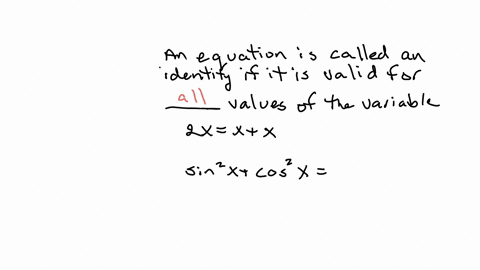 An equation is called an
identity if it is valid for
all values of the variable
2x = x + x
sin²x + cos²x =